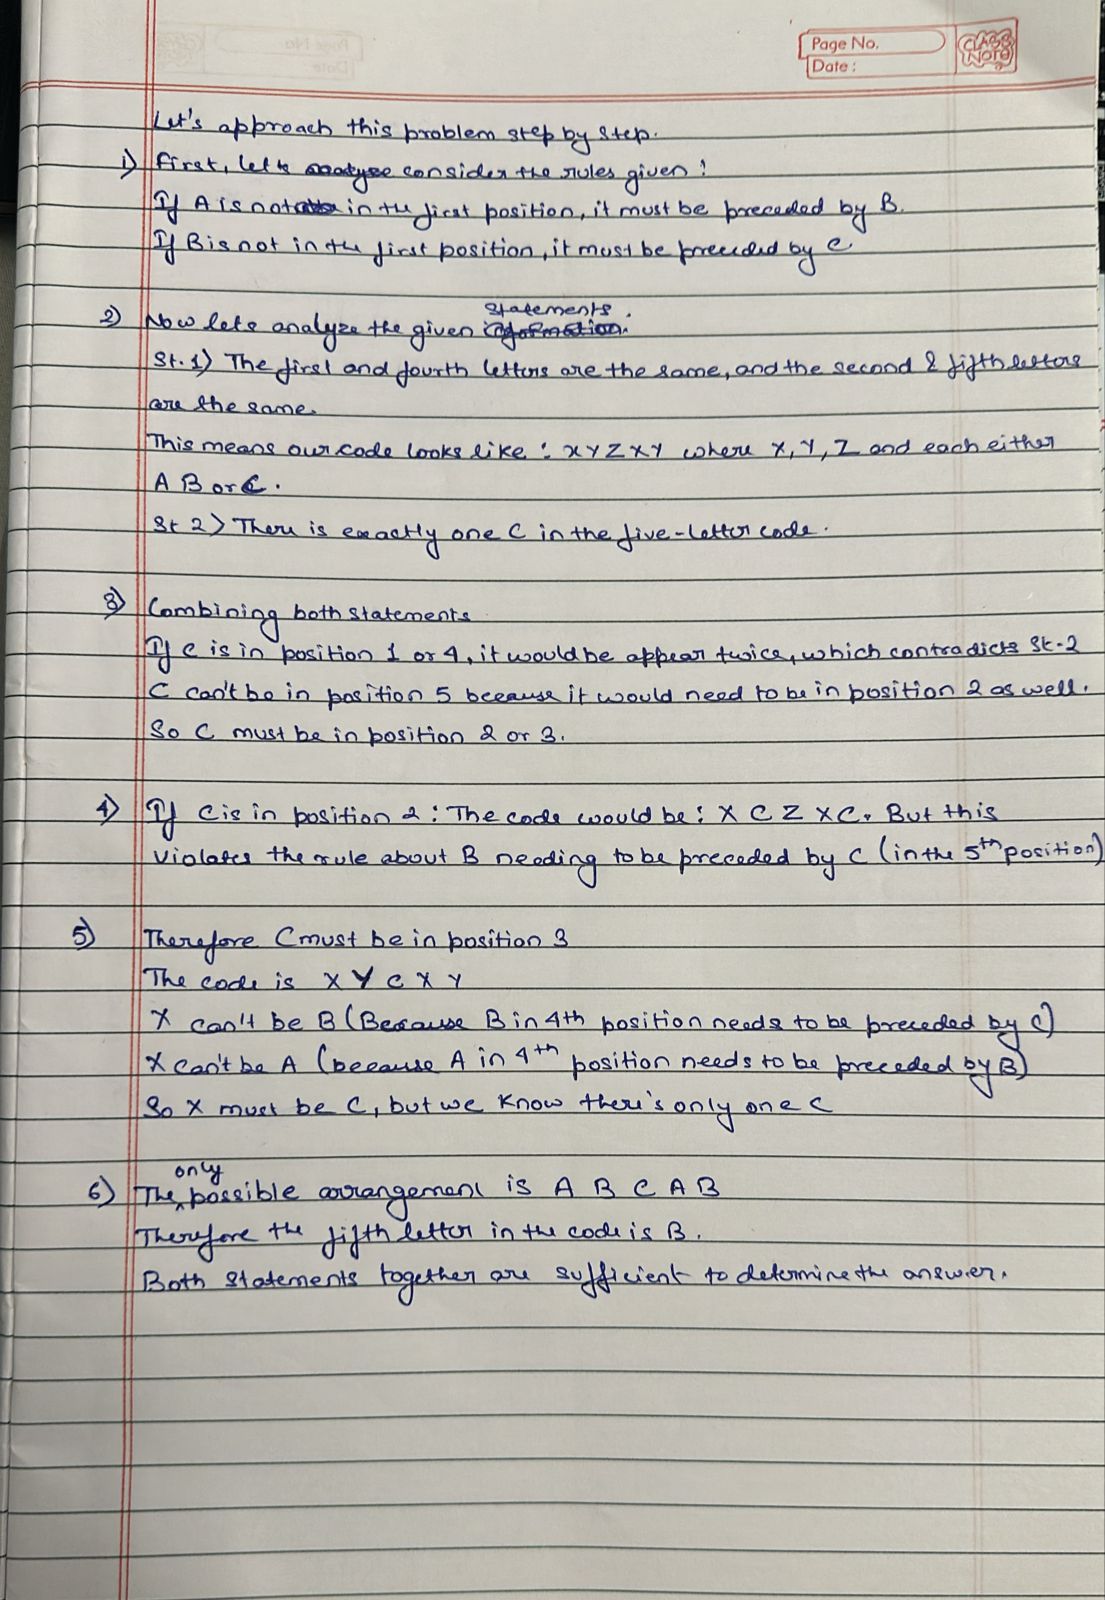 Page No.
CLASS
Note
Date:
Let's approach this problem step by step.
1) First, let's consider the rules given:
If A is not in the first position, it must be preceded by B.
If B is not in the first position, it must be preceded by C.
statements.
2) Now lets analyze the given
St. 1) The first and fourth letters are the same, and the second & fifth letters
are the same.
This means our code looks like : XYZXY where X, Y, Z and each either
A B or C.
St 2) There is exactly one C in the five-letter code.
3) Combining both statements
If C is in position 1 or 4, it would be appear twice, which contradicts St-2
C can't be in position 5 because it would need to be in position 2 as well.
So C must be in position 2 or 3.
4) If C is in position 2 : The code would be : X C Z X C. But this
violates the rule about B needing to be preceded by C (in the 5th position)
5) Therefore C must be in position 3
The code is X Y C X Y
X can't be B (Because B in 4th position needs to be preceded by C)
X can't be A (because A in 4th position needs to be preceded by B)
So X must be C, but we know there's only one C
only
6) The possible arrangement is A B C A B
Therefore the fifth letter in the code is B.
Both statements together are sufficient to determine the answer.